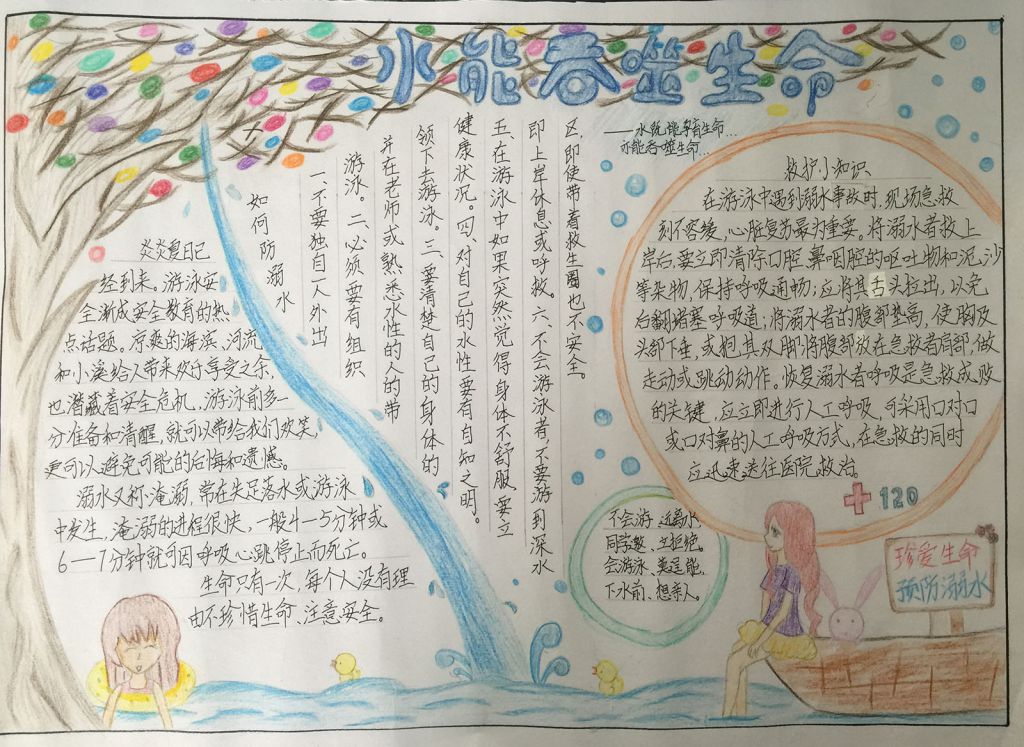 水能吞噬生命
——水既能孕育生命…
亦能吞噬生命…
炎炎夏日已
经到来。游泳安
全渐成安全教育的热
点话题。凉爽的海滨、河流
和小溪给人带来欢乐享受之余，
也潜藏着安全危机，游泳前多一
分准备和清醒，就可以带给我们欢笑，
更可以避免可能的后悔和遗憾。
溺水又称淹溺，常在失足落水或游泳
中发生，淹溺的进程很快，一般4—5分钟或
6—7分钟就可因呼吸心跳停止而死亡。
生命只有一次，每个人没有理
由不珍惜生命、注意安全。
如何防溺水
一、不要独自一人外出
游泳。二、必须要有组织
并在老师或熟悉水性的人的带
领下去游泳。三、要清楚自己的身体的
健康状况。四、对自己的水性要有自知之明。
五、在游泳中如果突然觉得身体不舒服，要立
即上岸休息或呼救。六、不会游泳者，不要游到深水
区，即使带着救生圈也不安全。
救护小知识
在游泳中遇到溺水事故时，现场急救
刻不容缓，心脏复苏最为重要。将溺水者救上
岸后，要立即清除口腔、鼻咽腔的呕吐物和泥沙
等杂物，保持呼吸通畅；应将其舌头拉出，以免
后翻堵塞呼吸道；将溺水者的腹部垫高，使胸及
头部下垂，或抱其双脚将腹部放在急救者肩部，做
走动或跳动动作。恢复溺水者呼吸是急救成败
的关键，应立即进行人工呼吸，可采用口对口
或口对鼻的人工呼吸方式，在急救的同时
应迅速送往医院救治。
120
不会游、近离水，
同学教、立拒绝。
会游泳、莫逞能，
下水前、想亲人。
珍爱生命
预防溺水